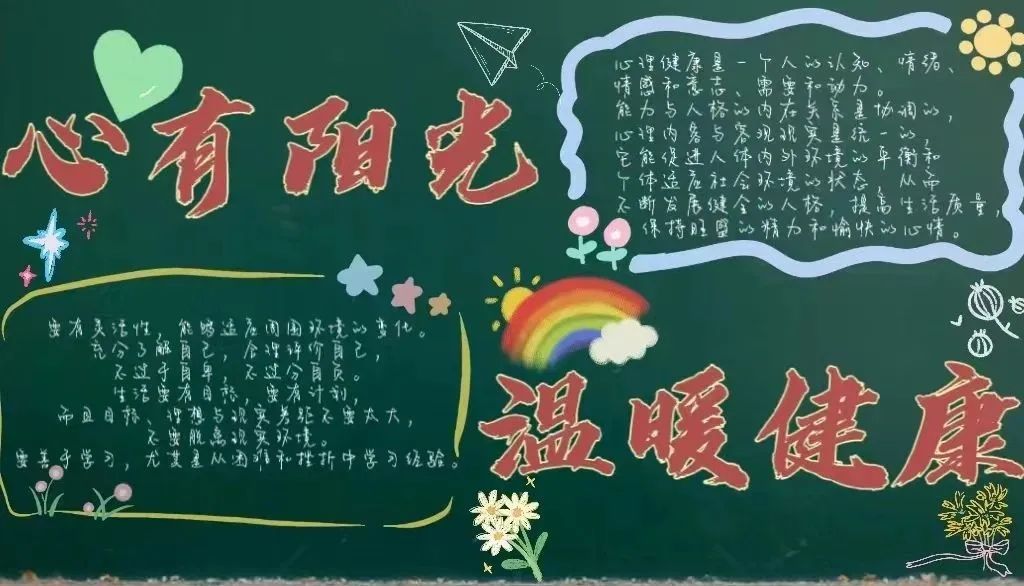 心有阳光
心理健康是一个人的认知、情绪、
情感和意志、需要和动力。
能力与人格的内在关系是协调的,
心理内容与客观现实是统一的,
它能促进人体内外环境的平衡,和
个体适应社会环境的状态,从而
不断发展健全的人格,提高生活质量,
保持旺盛的精力和愉快的心情。
要有灵活性,能够适应周围环境的变化。
充分了解自己,合理评价自己,
不过于自卑,不过分自负。
生活要有目标,要有计划,
而且目标、理想与现实差距不要太大,
不要脱离现实环境。
要善于学习,尤其是从困难和挫折中学习经验。
温暖健康